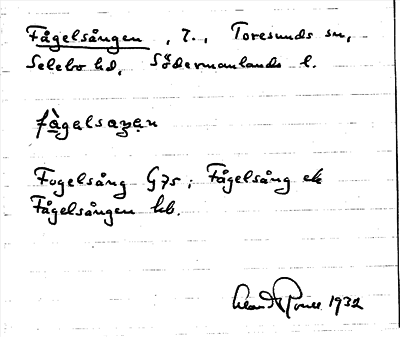 Fågelsången, T., Toresunds sn,
Selebo hd, Södermanlands l.
fågelsaŋen
Fogelsång G75; Fågelsång ek
Fågelsången hb.
1932